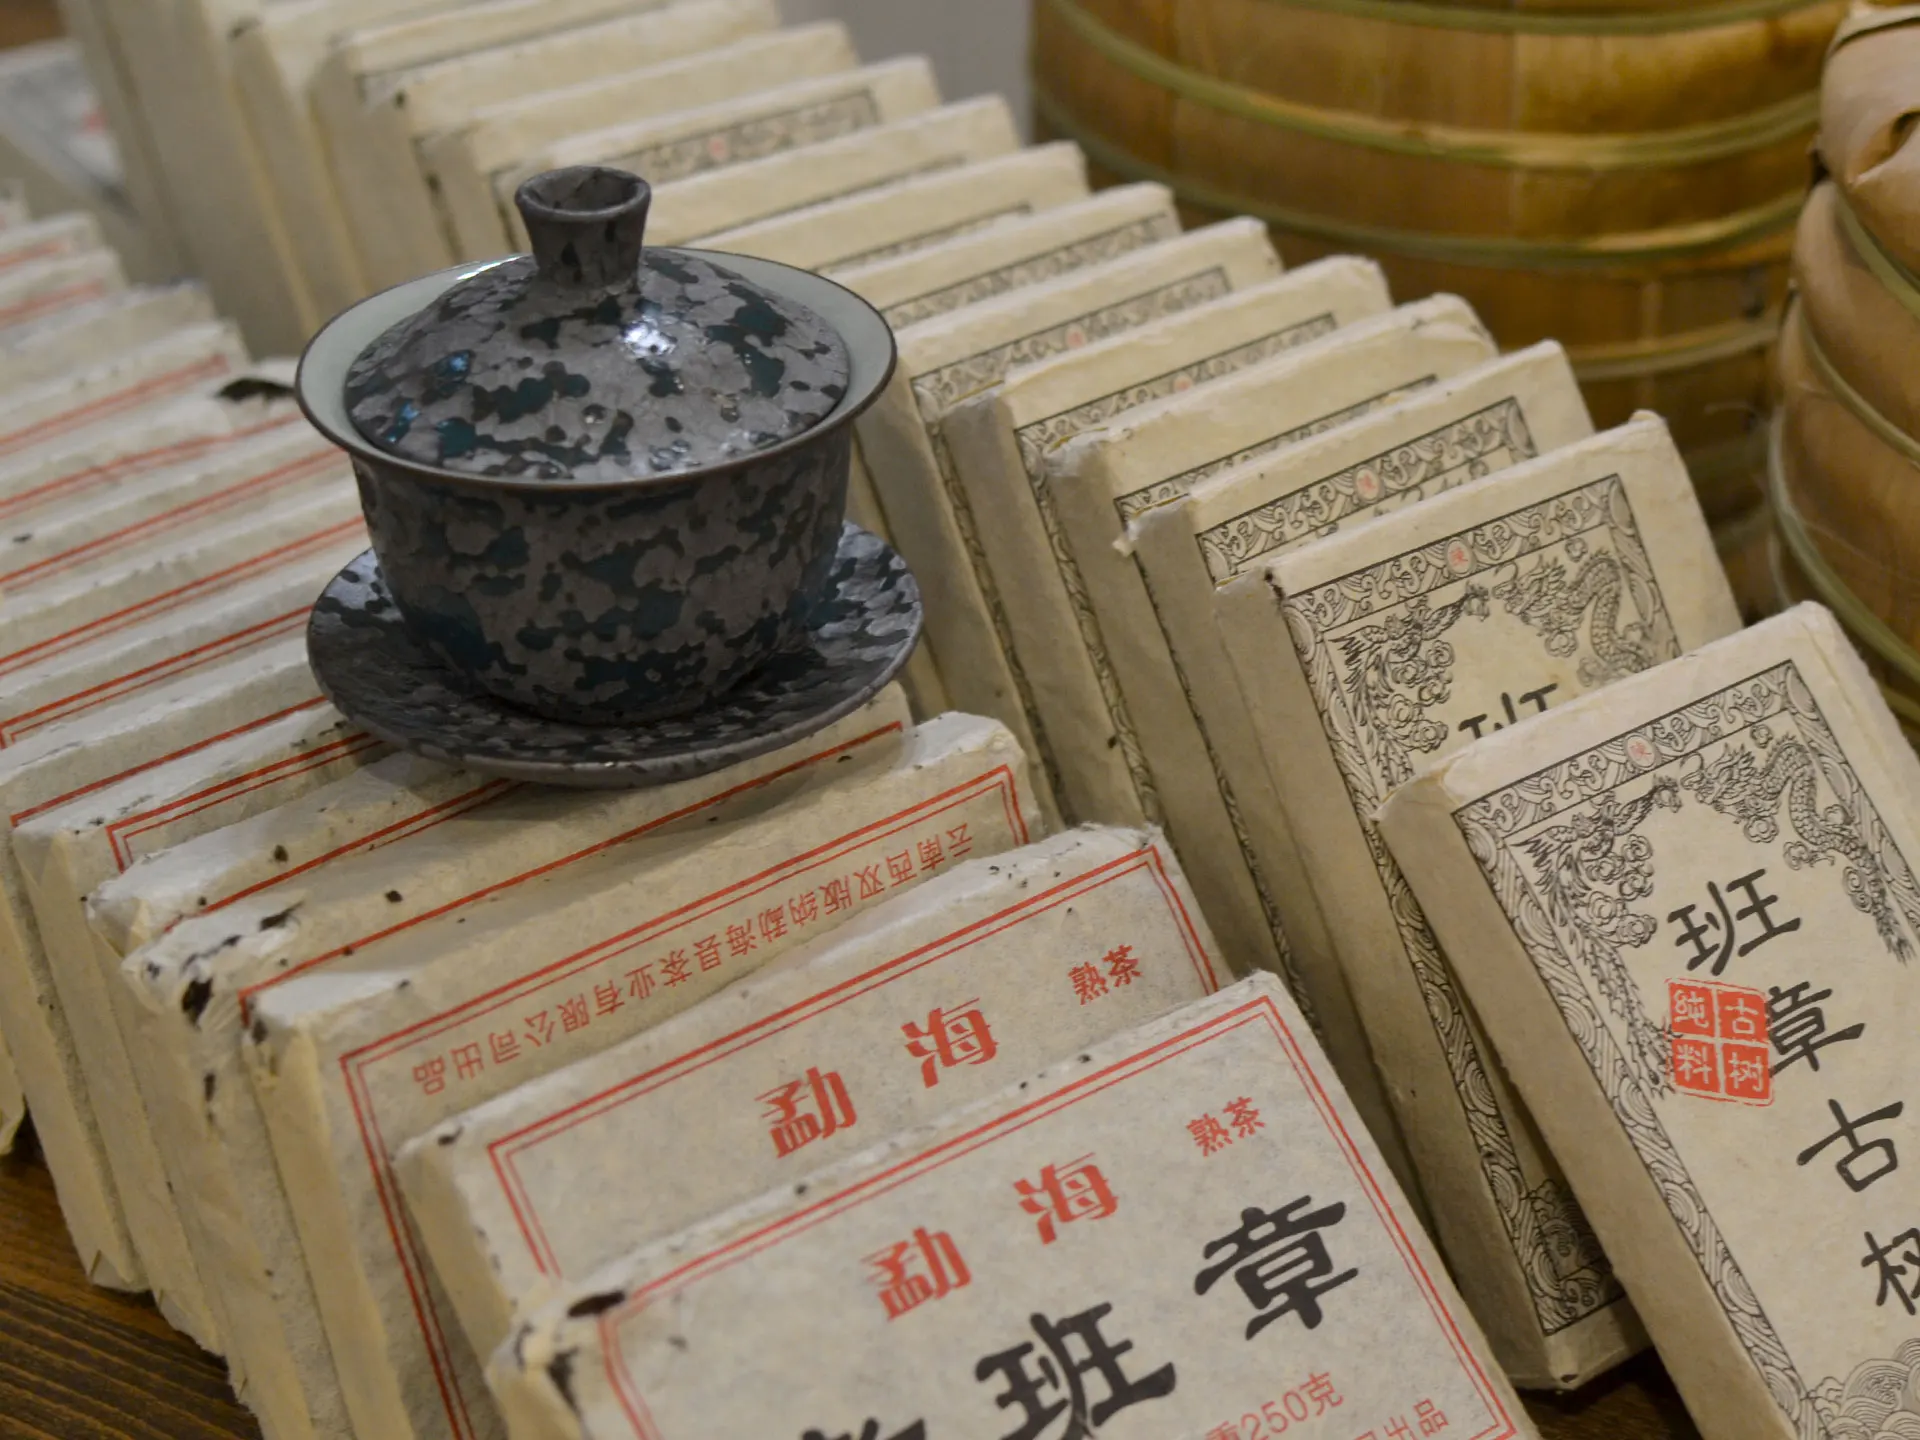 云南西双版纳勐海县茶业有限公司出品
勐海
熟茶
勐海
熟茶
班章
250克
出品
班
班章古树
纯料
古树